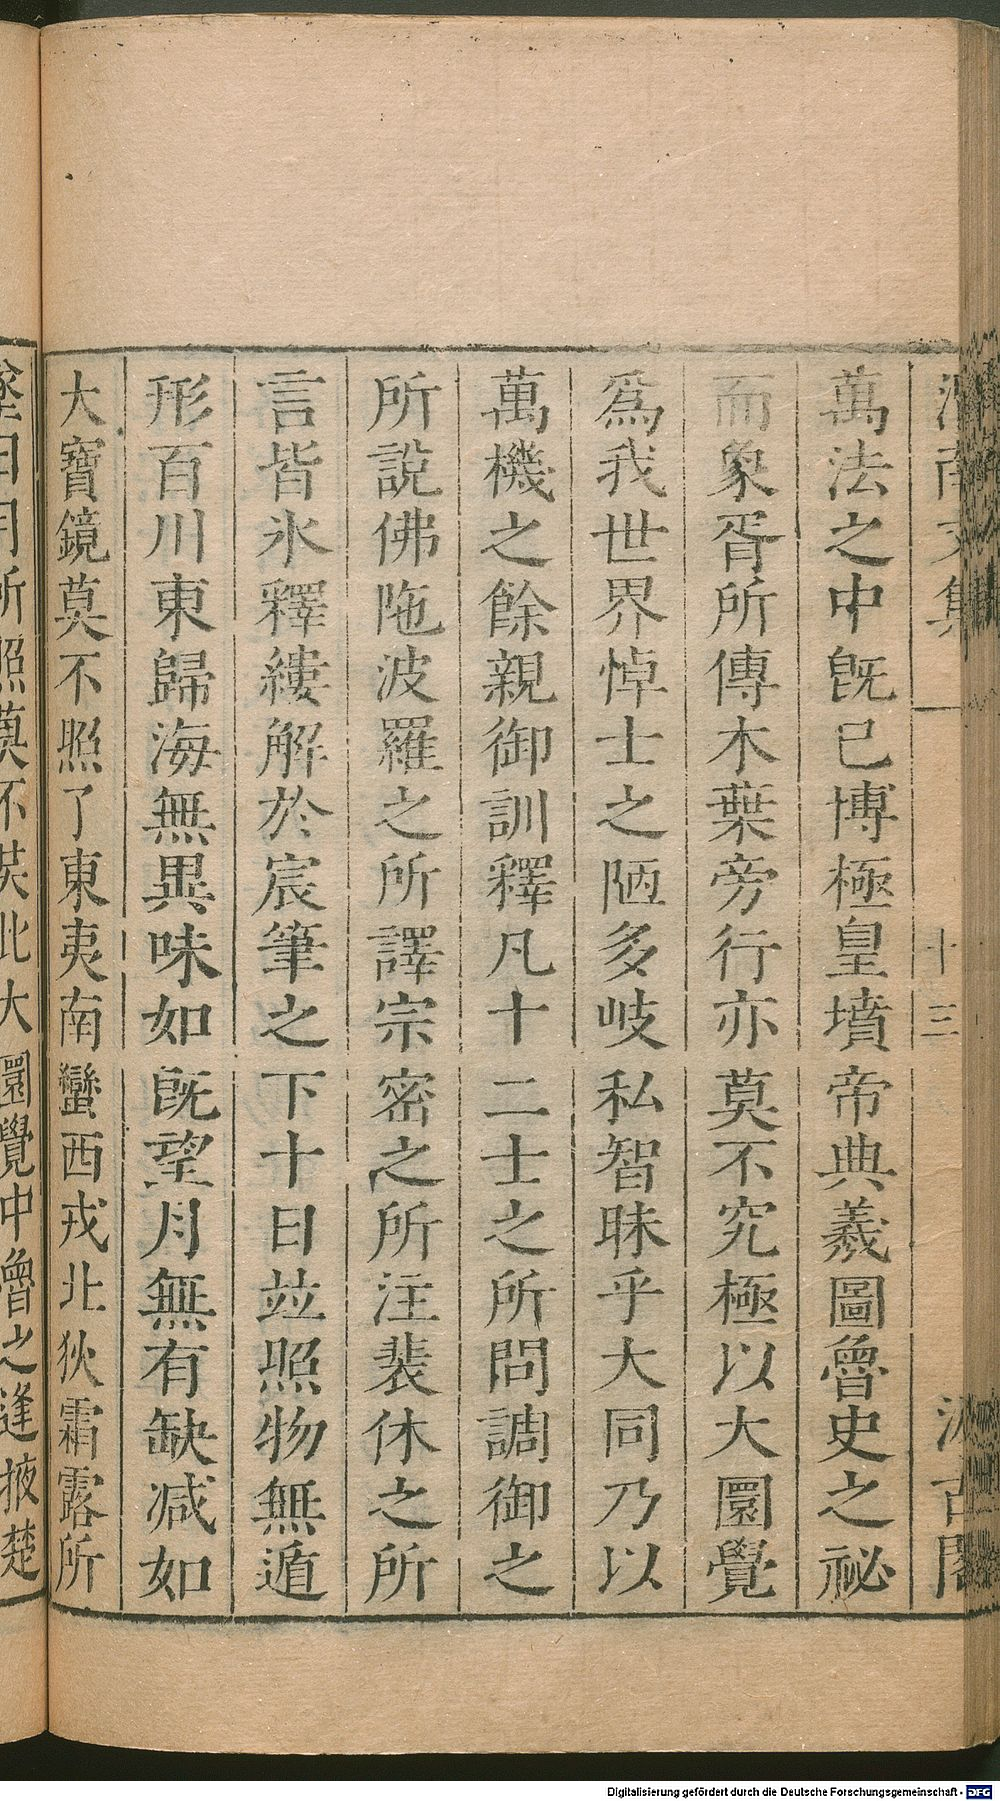 渭南文集 十三 汲古閣
萬法之中旣已博極皇墳帝典羲圖魯史之祕
而象胥所傳木葉旁行亦莫不究極以大圜覺
爲我世界悼士之陋多岐私智昧乎大同乃以
萬機之餘親御訓釋凡十二士之所問調御之
所說佛陁波羅之所譯宗密之所注裴休之所
言皆氷釋縷解於宸筆之下十日並照物無遁
形百川東歸海無異味如旣望月無有缺减如
大寶鏡莫不照了東夷南蠻西戎北狄霜露所
墜日月所照莫不共此大圜覺中魯之逢掖楚
Digitalisierung gefördert durch die Deutsche Forschungsgemeinschaft - DFG